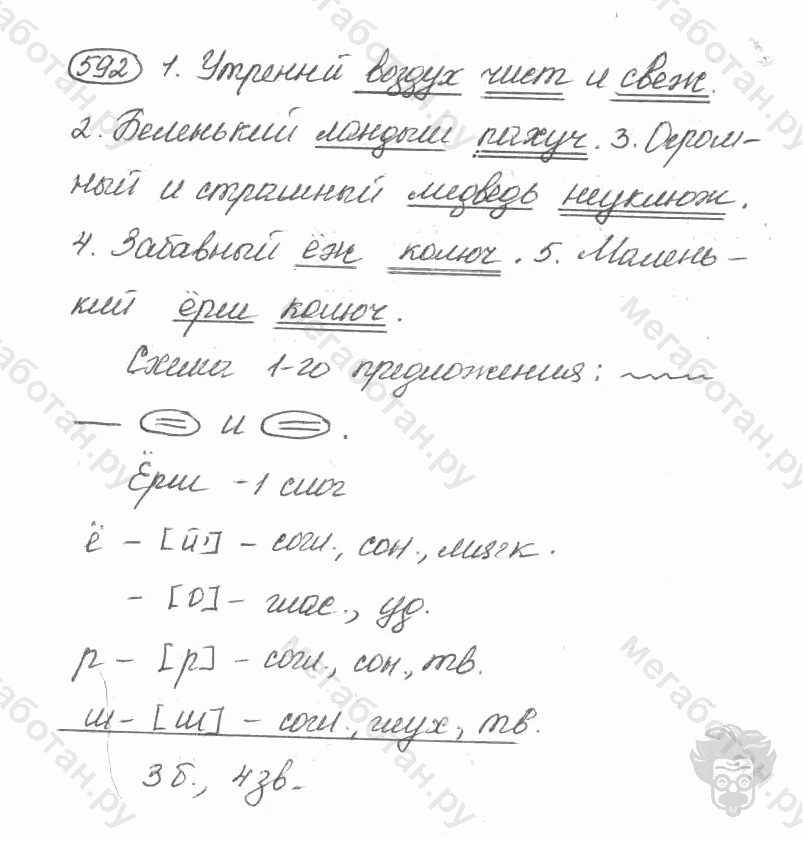 592 1. Утренний воздух чист и свеж.
2. Беленький ландыш пахуч. 3. Огром-
ный и страшный медведь неуклюж.
4. Забавный ёж колюч. 5. Малень-
кий ёрш колюч.
Схема 1-го предложения:
и .
Ёрш - 1 слог
ё - [й'] - согл., сон., мягк.
- [о] - глас., уд.
р - [р] - согл., сон., тв.
ш - [ш] - согл., глух., тв.
3 б., 4 зв.
мегаботан.ру